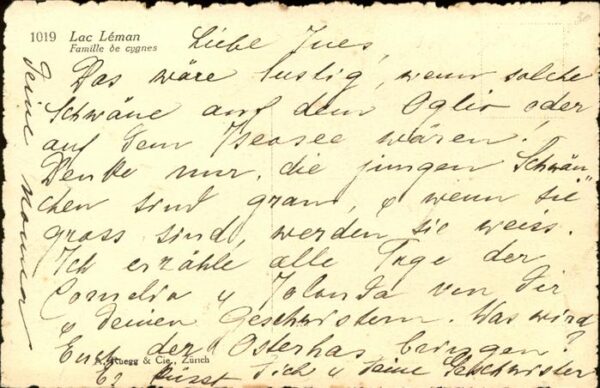 1019 Lac Léman
Famille de cygnes
Liebe Ines,
Das wäre lustig, wenn solche
Schwäne auf dem Oglio oder
auf dem Iseosee wären!
Denke nur, die jungen Schwän-
chen sind grau, & wenn sie
gross sind, werden sie weiss.
Ich erzähle alle Tage der
Cornelia & Jolanda von Dir
& deinen Geschwistern. Was wird
Euch der Osterhas bringen?
Es küsst Dich & deine Geschwister
Deine Nonna
Ruegg & Cie., Zürich
30